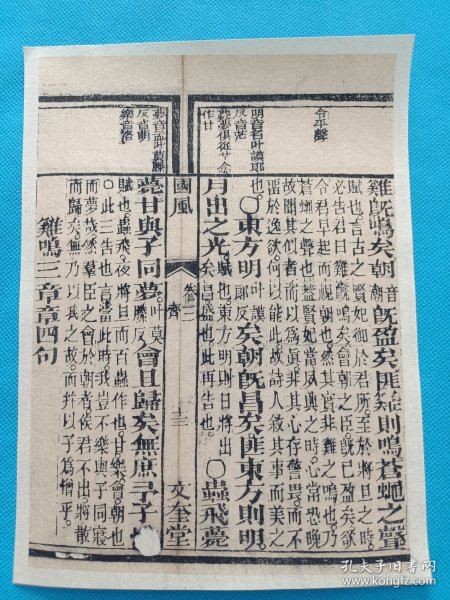 令平聲
雞旣鳴矣朝音潮旣盈矣匪雞則鳴蒼蠅之聲
賦也。言古之賢妃御於君所。至於將旦之時。
必告君曰雞旣鳴矣會朝之臣旣已盈矣欲
令君早起而視朝也然其實非雞之鳴也乃
蒼蠅之聲也葢賢妃當夙興之時心常恐晚
故聞其似者而以為眞非其心存警畏而不
留於逸欲何以能此故詩人叙其事而美之
也。○東方明叶謨郎反矣朝旣昌矣匪東方則明
月出之光賦也。東方明則日將出矣昌盛也此再告也。○蟲飛薨
國風
卷之三
齊
十三
文奎堂
樂音洛
薨甘與子同夢叶莫滕反會且歸矣無庶予子
賦也。蟲飛。夜將旦而百蟲作也。甘樂會。朝也
○此三告也。言當此時。我豈不樂與子同寢
而夢哉然羣臣之會於朝者俟君不出將散
而歸矣。無乃以我之故。而并以子為憎乎。
雞鳴三章章四句
孔夫子旧书网